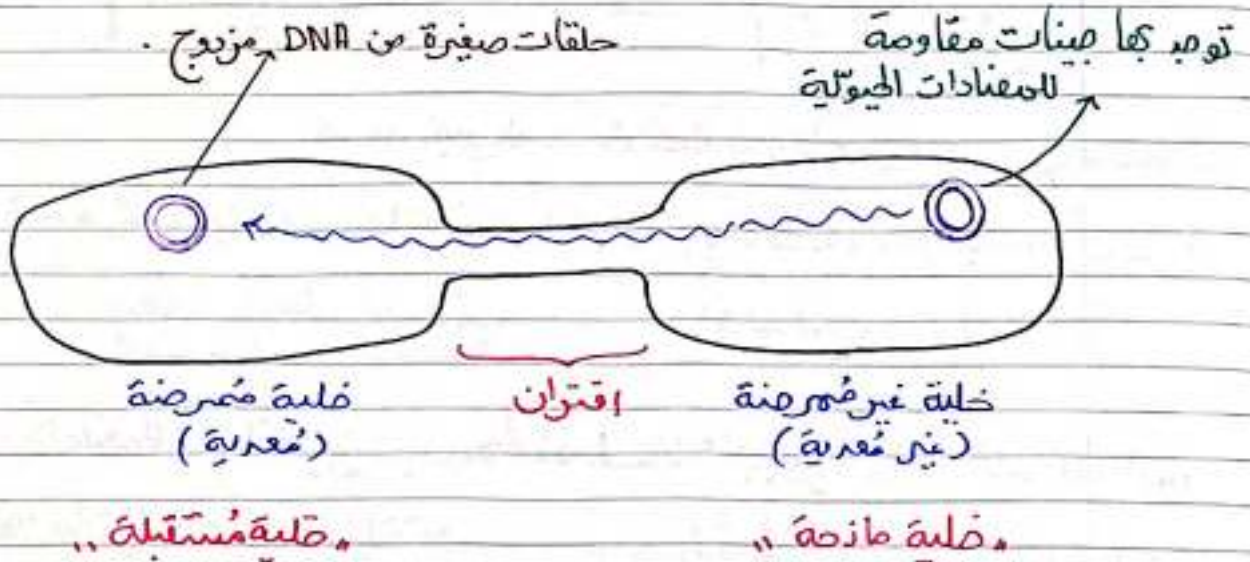 توجد بها جينات مقاومة
للمضادات الحيويّة
حلقات صغيرة من DNA مزدوج .
خلية غير مُمرضة
(غير مُعدية)
اقتران
خلية مُمرضة
(مُعدية)
"خلية مانحة"
"خلية مُستقبلة"